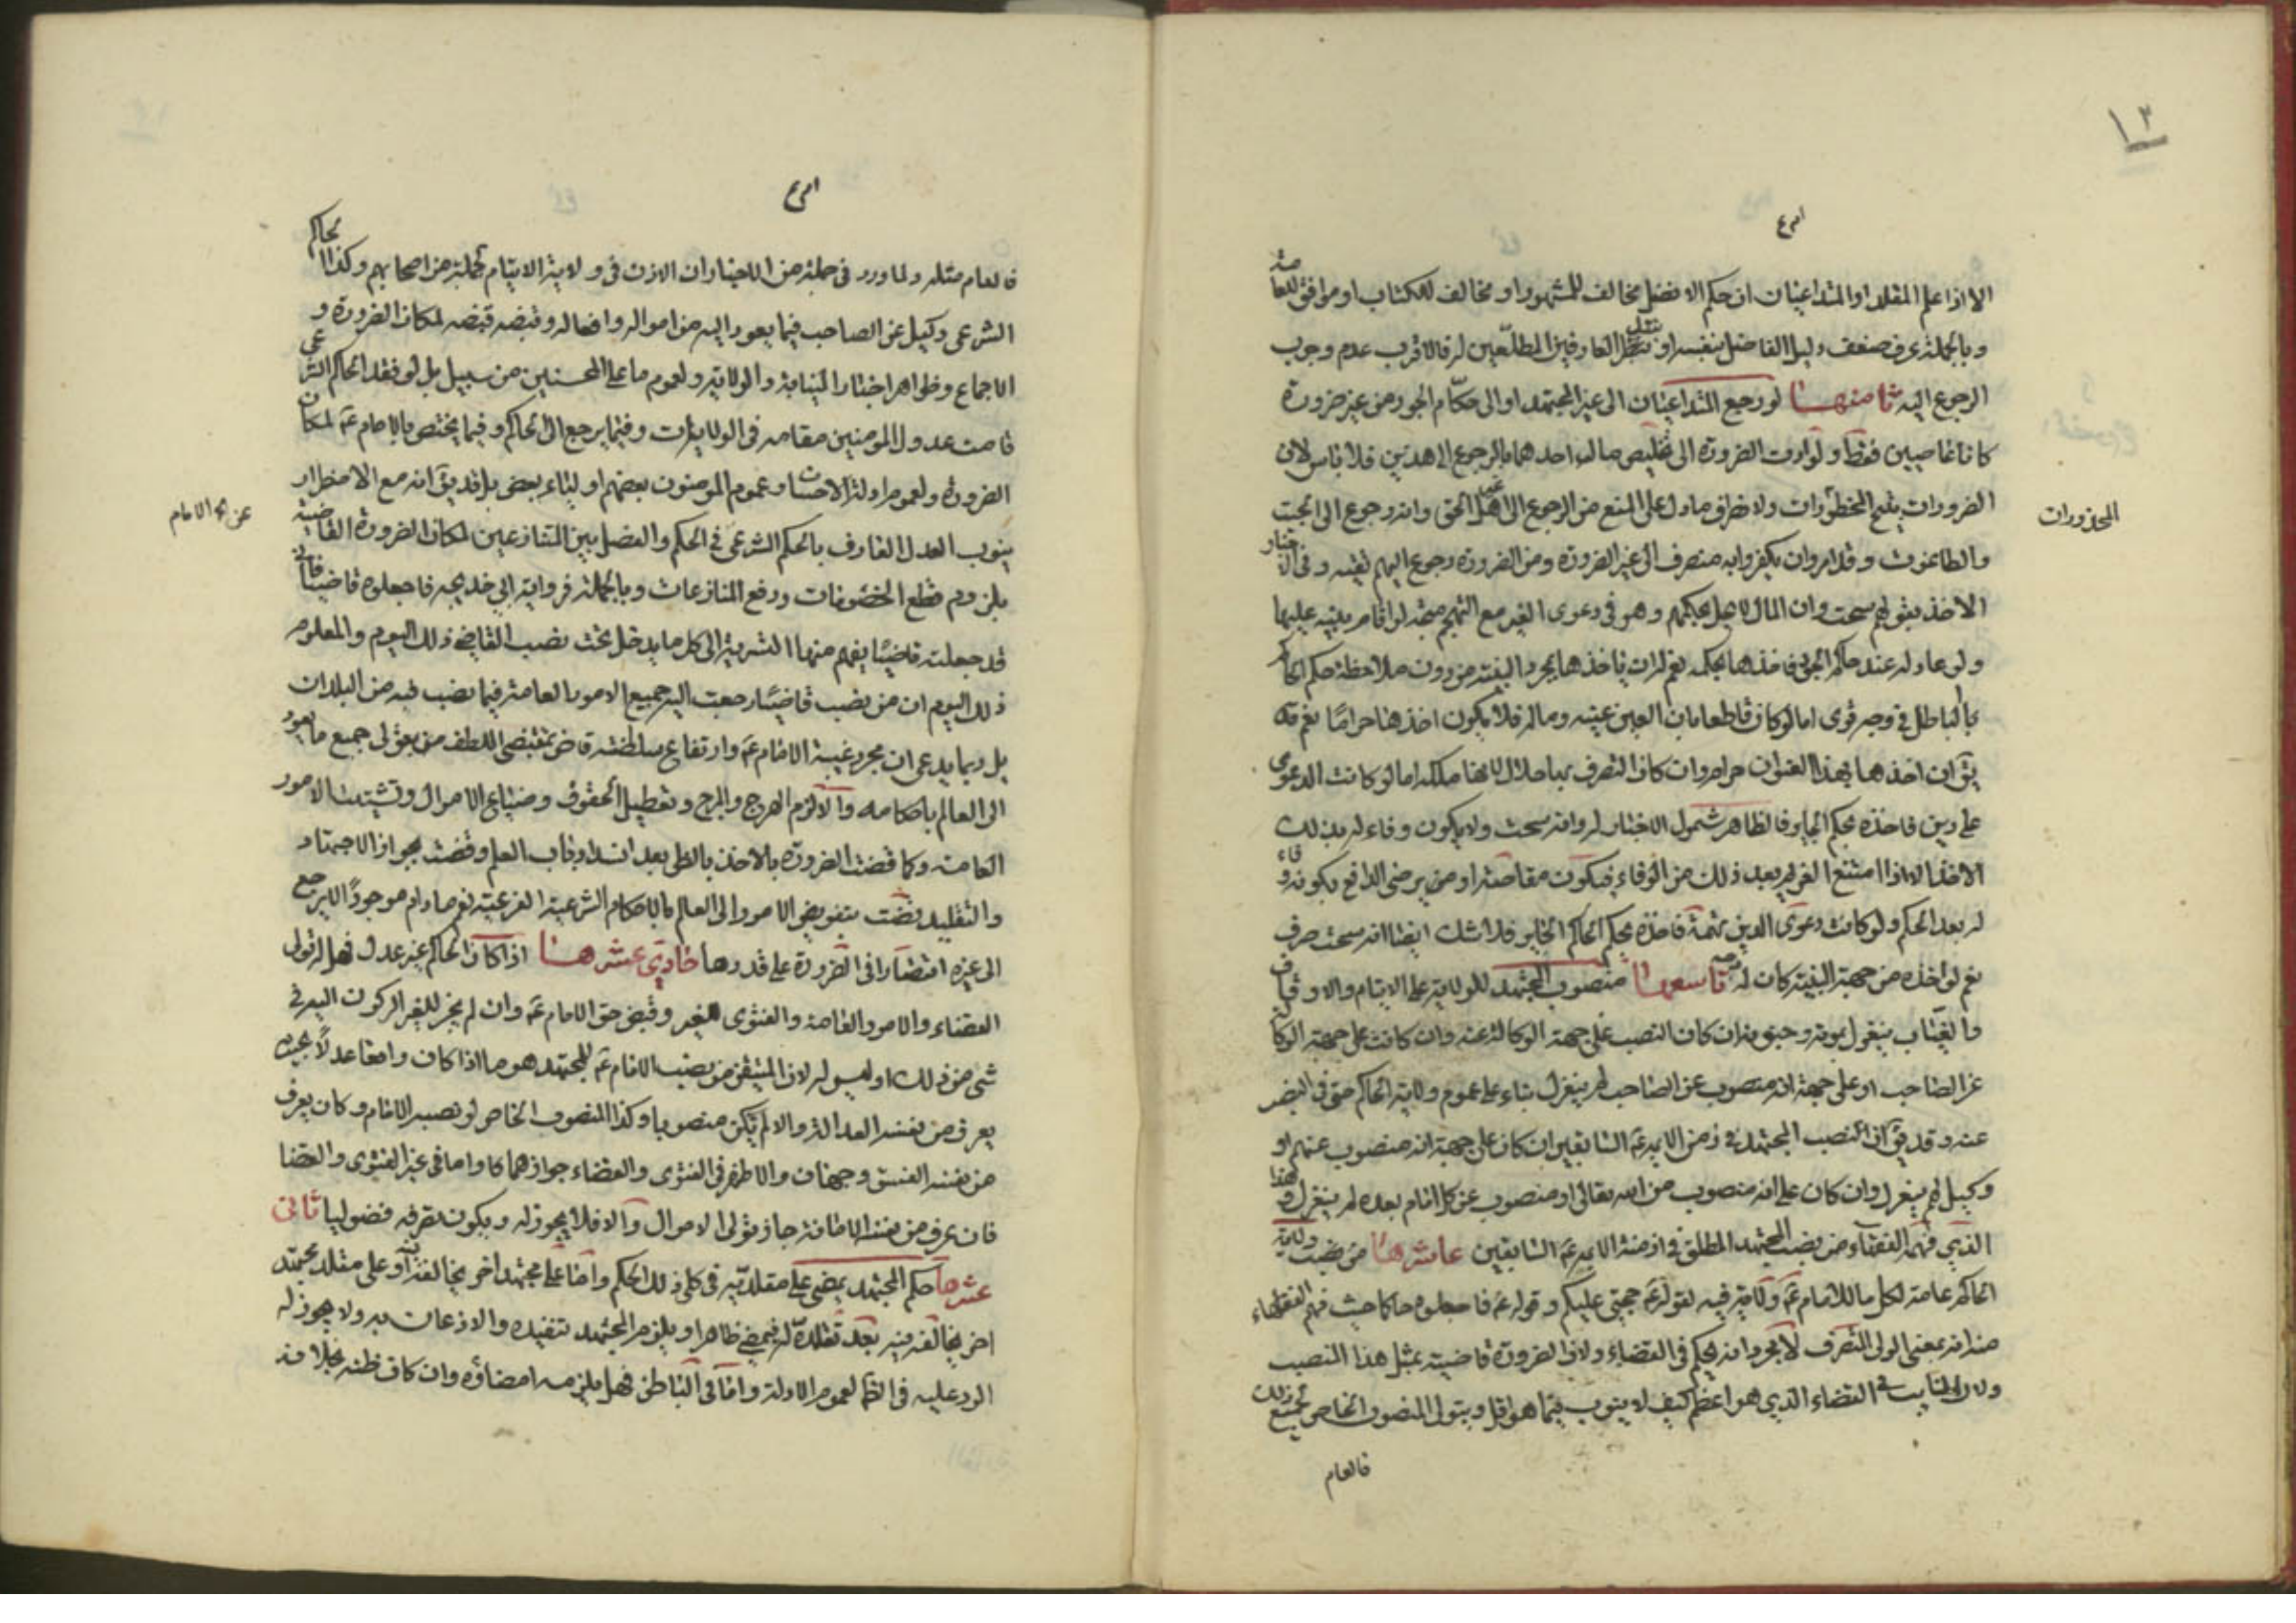 ١٣
الا اذا علم المقلد او المتداعيان ان حكم الافضل مخالف للمشهور او مخالف للكتاب او موافق للعامة
وبالجملة عرف ضعف دليل الفاضل بنفسه او بنقل العارفين المطلعين له فالاقرب عدم وجوب
الرجوع اليه ثامنها لو رجع المتداعيان الى غير المجتهد او الى حكام الجور من غير ضرورة
كانا عاصيين فقط ولو ادت الضرورة الى تخليص مال احدهما بالرجوع الى هذين فلا باس لان
الضرورات تبيح المحظورات ولانصراف ما دل على المنع من الرجوع الى غير اهل الحق وانه رجوع الى الجبت
المحذورات
والطاغوت وقد امروا ان يكفروا به منصرف الى غير الضرورة ومن الضرورة رجوع اليهم لتقية وفى الاخبار
الاخذ بقولهم سحت وان المال لا يحل بحكمهم وهو فى دعوى الغير مع التهم متجه لو اقام بينة عليها
ولو عادله عند حاكم الجور فاخذها بحكمه نعم له ان ياخذها بمجرد البينة من دون ملاحظة حكم الحاكم
بالباطل فى وجه قوى اما لو كان قاطعا بان العين عينه وماله فلا يكون اخذها حراما نعم قد
يق ان اخذها بهذا العنوان حرام وان كان التصرف بها حلال لانها ملكه اما لو كانت الدعوى
على دين فاخذه بحكم الجاير فالظاهر شمول الاخبار له وانه سحت ولا يكون وفاء له بذلك
الاخذ الا اذا امتنع الغريم بعد ذلك من الوفاء فيكون مقاصة او من يرضى الدافع بكونه وفاء
له بعد الحكم ولو كانت دعوى الدين تهمة فاخذه بحكم الحاكم الجاير فلا شك ايضا انه سحت صرف
نعم لو اخذه من جهة البينة كان له وجه تاسعها منصوب المجتهد للولاية على الايتام والاوقاف
والغياب ينعزل بموته وجنونه ان كان النصب على جهة الوكالة عنه وان كانت على جهة الوكالة
عن الصاحب او على جهة انه منصوب عن الصاحب لم ينعزل بناء على عموم ولاية الحاكم حتى فى النصب
عنه وقد يق ان النصب المجتهد فى زمن الايمة ع السابقين ان كان على جهة انه منصوب عنهم او
وكيل لهم ينعزل وان كان على انه منصوب من الله تعالى او منصوب عن كل امام بعده لم ينعزل وهذا
الذي فهمه الفقهاء من نصب المجتهد المطلق فى ازمنة الايمة ع السابقين عاشرها من نصب ولاية
الحاكم عامة لكل ما للامام ع ولاية فيه لقوله ع حجتى عليكم وقوله ع فاجعلوه حاكما حيث فهم الفقهاء
منه انه بمعنى الولى التصرف لا مجرد انه يحكم فى القضاء ولان الضرورة قاضية بمثل هذا النصب
ولان النايب فى القضاء الذي هو اعظم كيف لا ينوب فيما هو اقل ويتولى المنصوب الخاص لجميع ذلك
فالعام
فالعام مثله ولما ورد فى جملة من الاخبار ان الاذن فى ولاية الايتام لجملة من اصحابهم وكذا الحاكم
الشرعى وكيل عن الصاحب فيما يعود اليه من امواله وافعاله وقبضه قبضه لمكان الضرورة و
الاجماع وظواهر اخبار النيابة والولاية ولعموم ما على المحسنين من سبيل بل لو فقد الحاكم الشرعى
قامت عدول المؤمنين مقامه فى الولايات وفيما يرجع الى الحاكم وفيما يختص بالامام ع لمكان
الضرورة ولعموم ادلة الاحسان وعموم المؤمنون بعضهم اولياء بعض بل قد يق انه مع الاضطرار
ينوب العدل العارف بالحكم الشرعى فى الحكم والفصل بين المتنازعين لمكان الضرورة القاضية
بلزوم قطع الخصومات ورفع المنازعات وبالجملة فرواية ابى خديجه فاجعلوه قاضيا فانى
قد جعلته قاضيا يفهم منها التسرية الى كل ما يدخل تحت نصب القاضى ذلك اليوم والمعلوم
ذلك اليوم ان من نصب قاضيا رجعت اليه جميع الامور العامة فيما نصب فيه من البلدان
بل ربما يدعى ان مجرد غيبة الامام ع وارتفاع سلطنته قاض بمقتضى اللطف من يتولى جميع ما يعود
الى العالم باحكامه والا لزم الهرج والمرج وتعطيل الحقوق وضياع الاموال وتشتيت الامور
العامة وكما قضت الضرورة بالاخذ بالظن بعد انسداد باب العلم وقضت بجواز الاجتهاد
والتقليد قضت بتفويض الامور الى العالم بالاحكام الشرعية الفرعية نعم ما دام موجودا لا يرجع
الى غيره اقتصارا فى الضرورة على قدرها حادي عشرها اذا كان الحاكم غير عدل فهل له تولى
القضاء والامور العامة والفتوى للغير وقبض حق الامام ع وان لم يجز للغير الركون اليه فى
شى من ذلك او ليس له لان المتيقن من نصب الامام ع للمجتهد هو ما اذا كان واقعا عدلا بحيث
يعرف من نفسه العدالة والا لم يكن منصوبا وكذا المنصوب الخاص لو نصبه الامام وكان يعرف
من نفسه الفسق وجهان والاظهر فى الفتوى والقضاء جوازهما كا واما فى غير الفتوى والقضا
فان عرف من نفسه الامانة جاز تولى الاموال والا فلا يجوز له ويكون تصرفه فضوليا ثانى
عشرها حكم المجتهد يمضى على مقلديه فى كل ذلك الحكم واما على مجتهد اخر يخالفه او على مقلد مجتهد
اخر يخالفه فيه بعد تقلده له فيمضى ظاهرا ويلزم المجتهد تنفيذه والاذعان به ولا يجوز له
الرد عليه فى الظا لعموم الادلة واما فى الباطن فهل يلزمه امضاؤه وان كان ظنه بخلافه